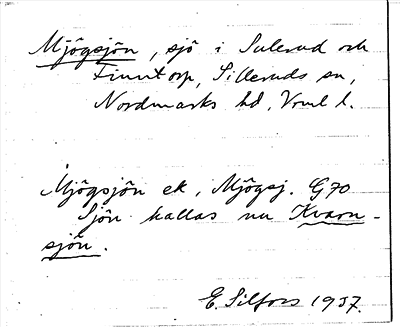 Mjögsjön, sjö i Sulerud och
Finntorp, Silleruds sn,
Nordmarks hd, Vrml l.
Mjögsjön ek, Mjögsj. G70
Sjön kallas nu Kvarn-
sjön.
E. Silfors 1937.